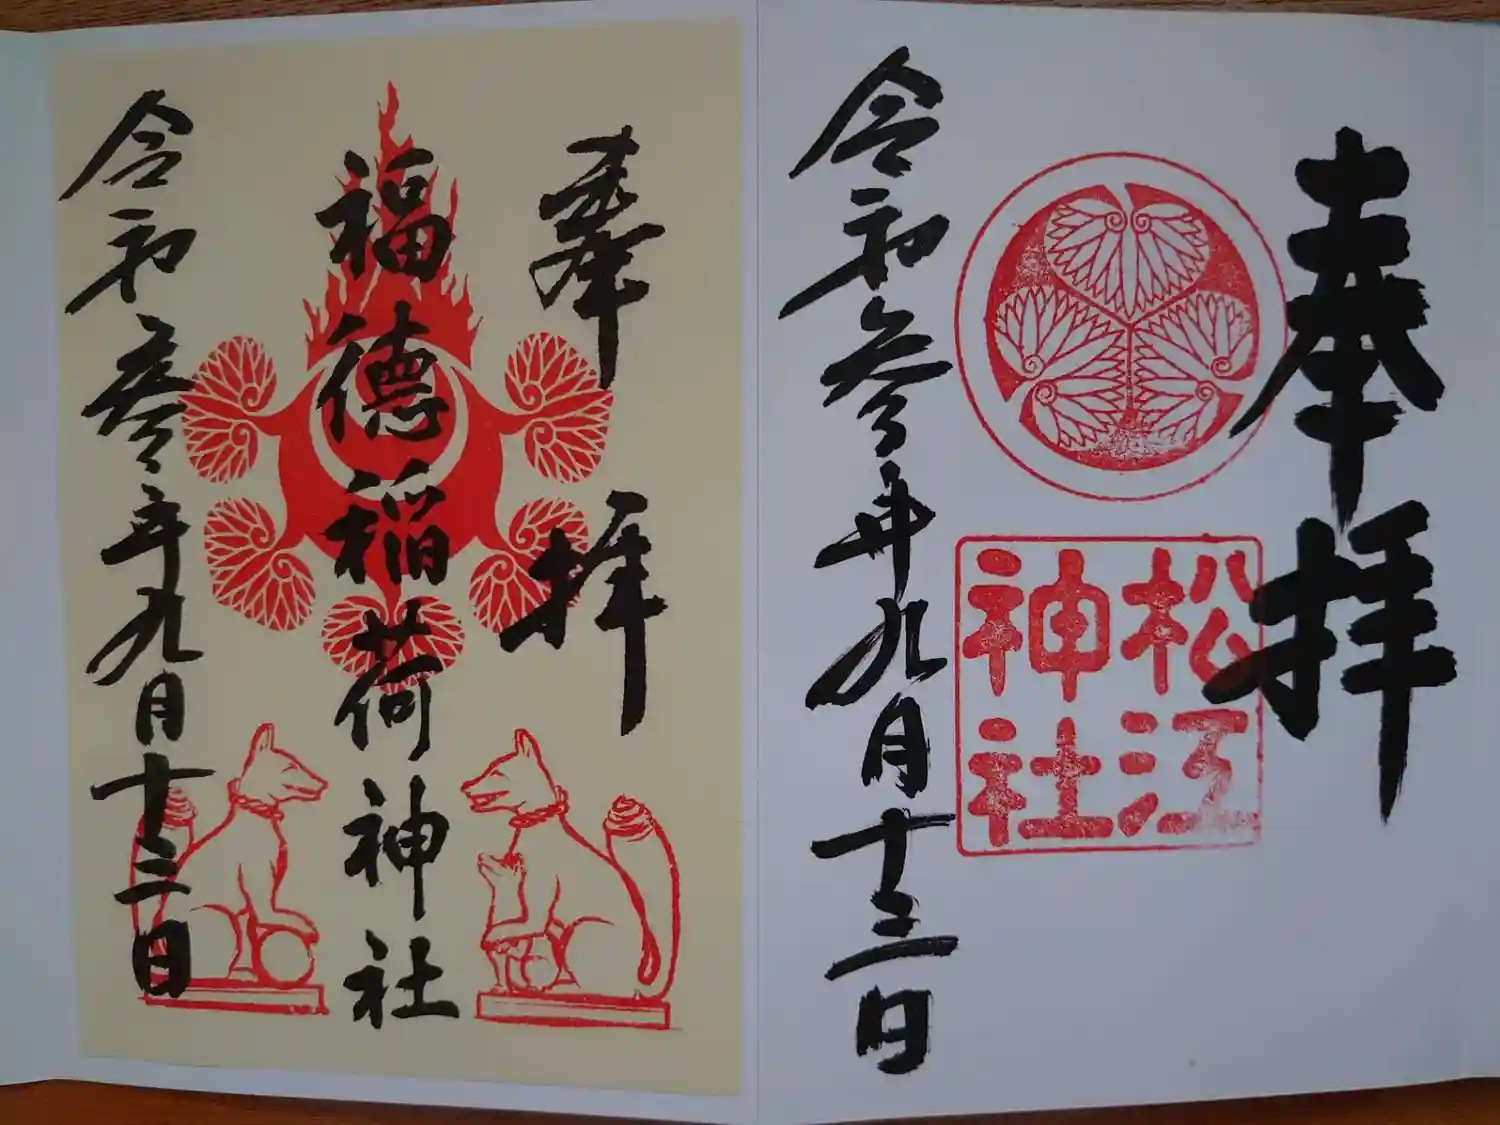 奉拝
松江
神社
令和参年九月十三日
奉拝
福徳稲荷神社
令和参年九月十三日